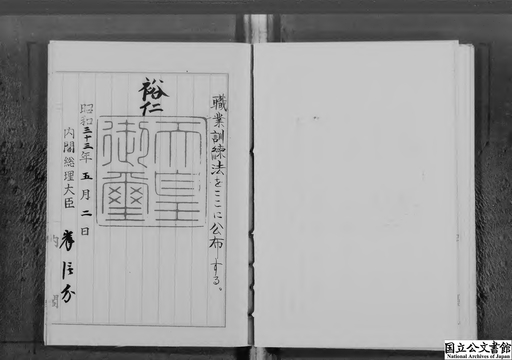 職業訓練法をここに公布する。
裕仁
天皇御璽
昭和三十三年五月二日
内閣総理大臣 岸信介
内閣
国立公文書館
National Archives of Japan